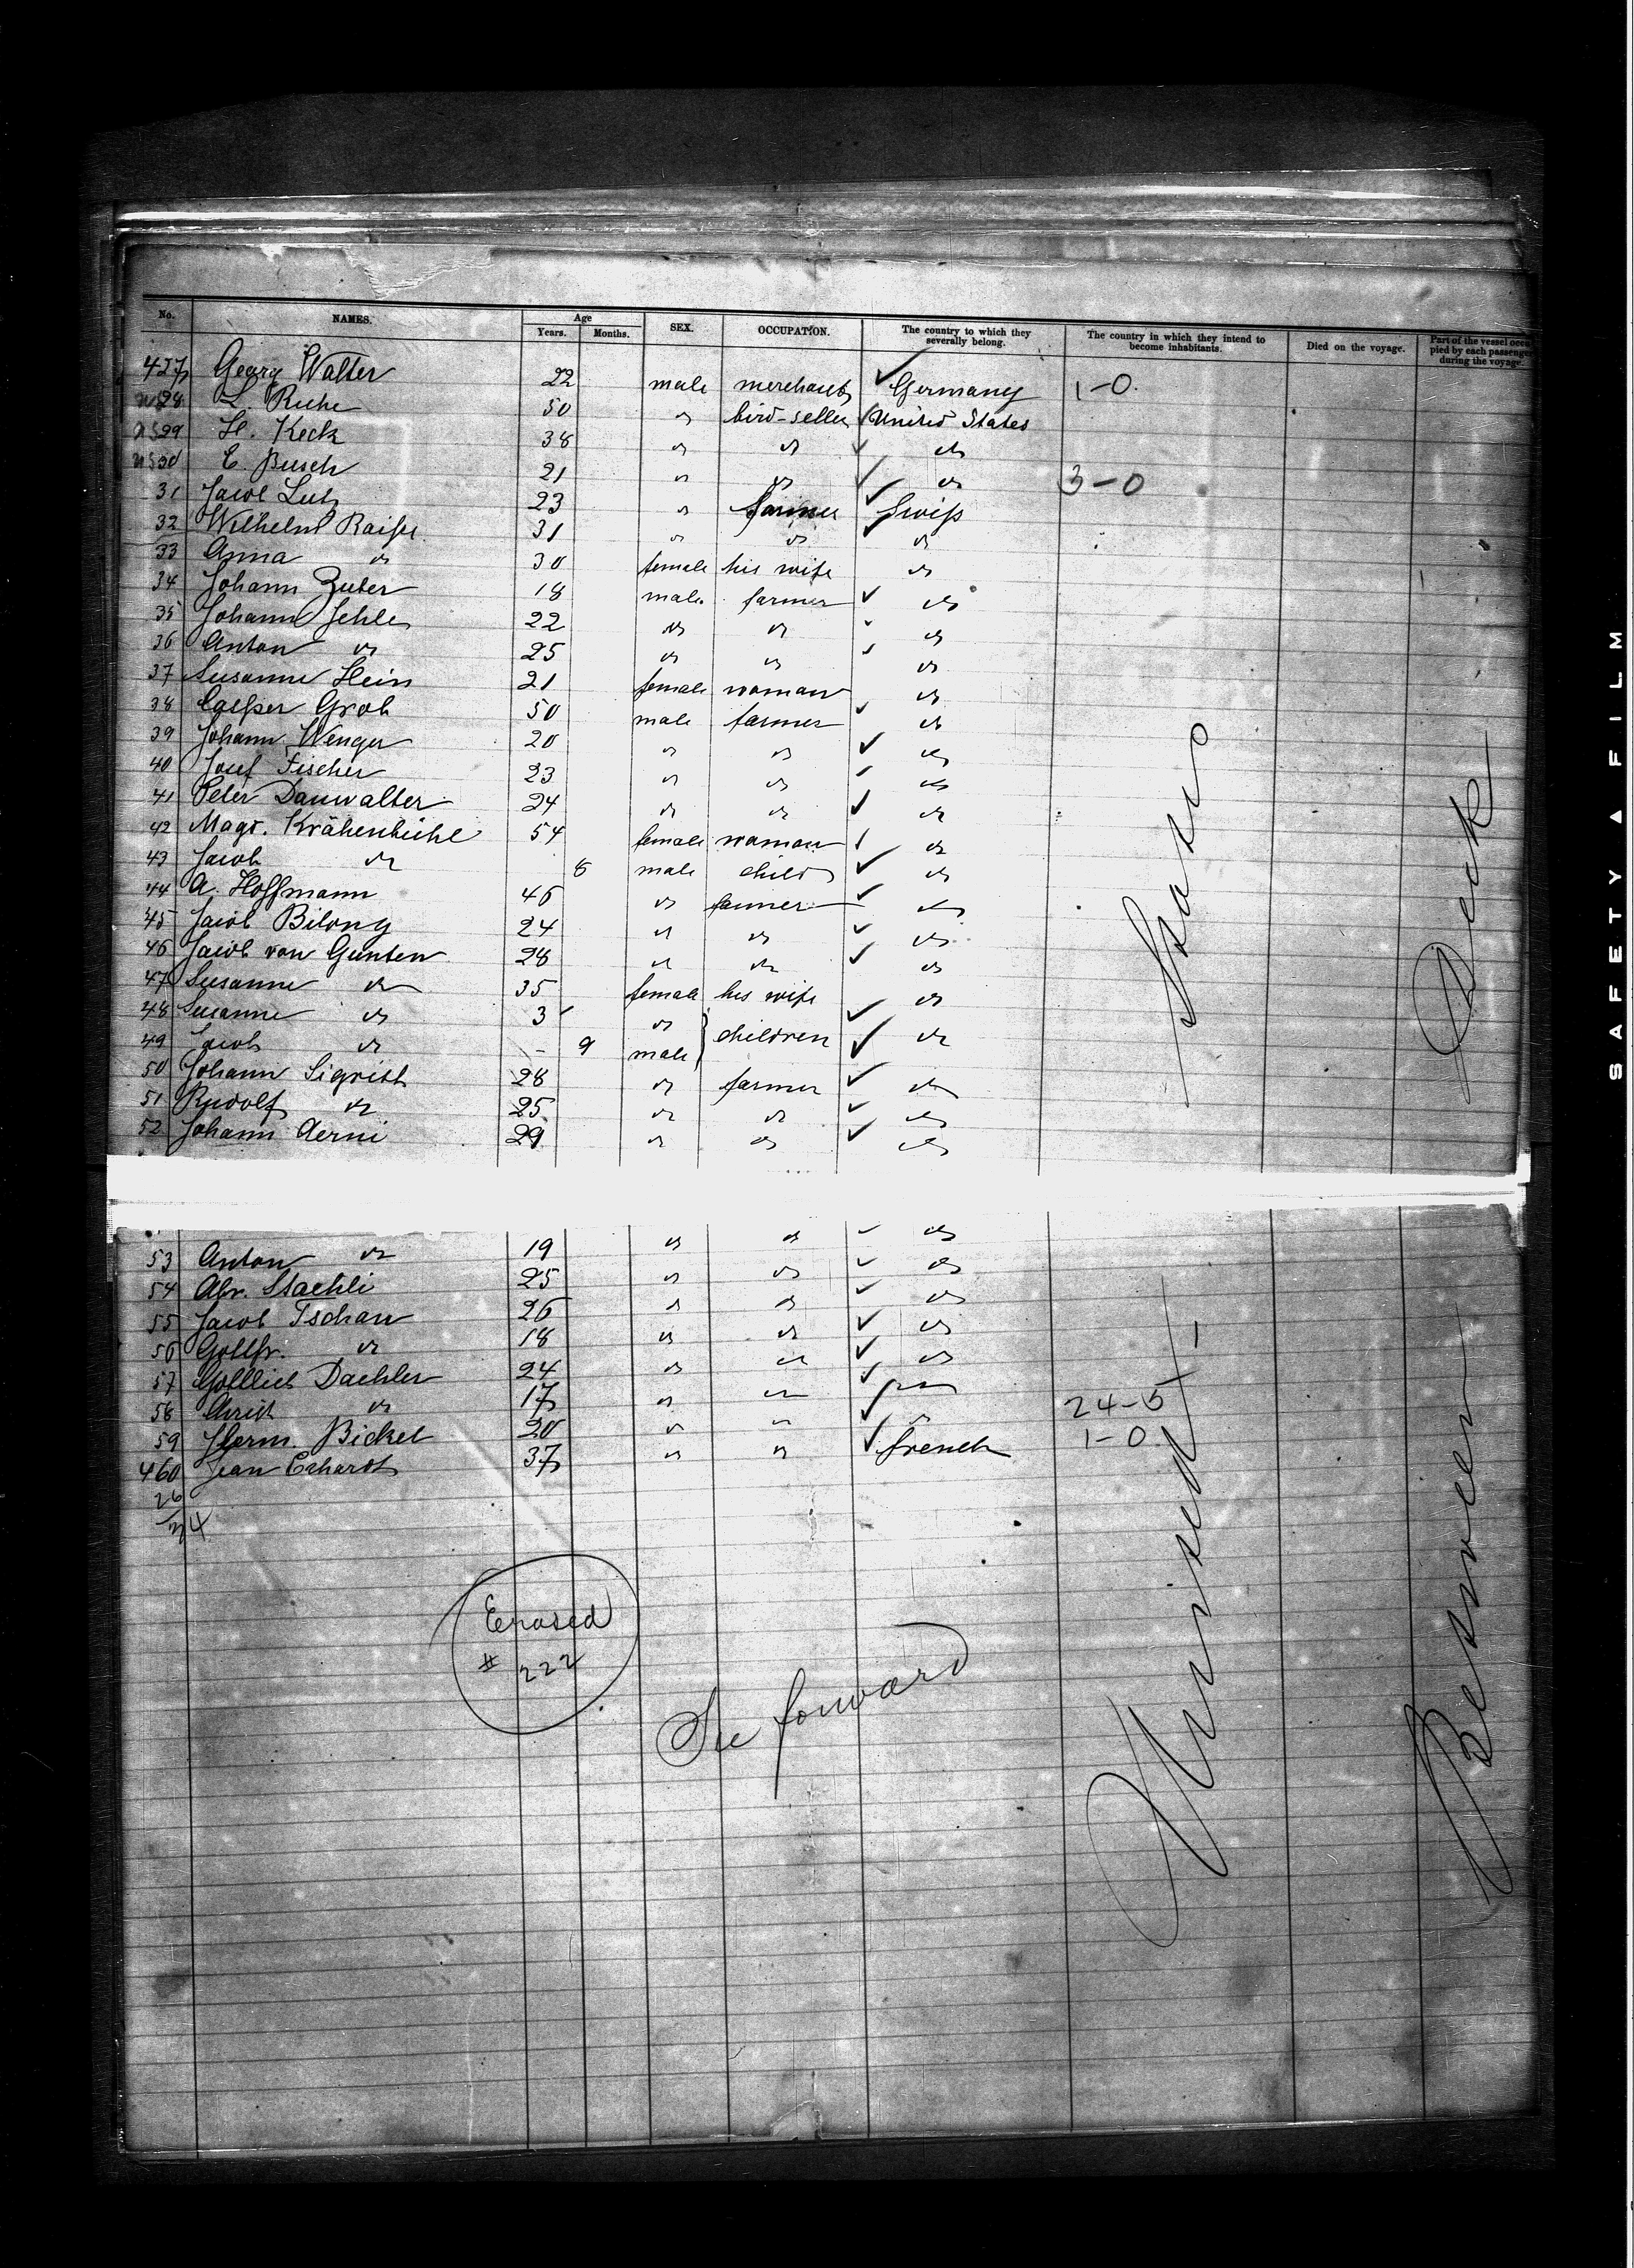 No. NAMES. Age Years. Months. SEX. OCCUPATION. The country to which they severally belong. The country in which they intend to become inhabitants. Died on the voyage. Part of the vessel occupied by each passenger during the voyage.
427 Georg Walter 22 male merchant Germany 1-0.
28 L. Riche 50 do bird-seller United States
29 H. Keck 38 do do do
30 E. Busch 21 do do do 3-0
31 Jacob Lutz 23 do farmer Swiss
32 Wilhelm Raiser 31 do do do
33 Anna do 30 female his wife do
34 Johann Zuber 18 male farmer do
35 Johann Jehle 22 do do do
36 Anton do 25 do do do
37 Susanne Hein 21 female woman do
38 Casper Grob 50 male farmer do
39 Johann Wenger 20 do do do
40 Josef Fischer 23 do do do
41 Peter Danwalter 24 do do do
42 Magd. Krähenbühl 54 female woman do
43 Jacob do 8 male child do
44 A. Hoffmann 46 do farmer do
45 Jacob Bilong 24 do do do
46 Jacob von Gunten 28 do do do
47 Susanne do 35 female his wife do
48 Susanne do 3 do children do
49 Jacob do - 9 male
50 Johann Sigrist 28 do farmer do
51 Rudolf do 25 do do do
52 Johann Aerni 29 do do do
53 Anton do 19 do do do
54 Abr. Staehli 25 do do do
55 Jacob Tschan 26 do do do
56 Gottfr. do 18 do do do
57 Gottlieb Daehler 24 do do do
58 Christ do 17 do do 24-5
59 Herm. Bickel 20 do do 1-0
460 Jean Erhardt 37 do do french
26
4
Erased
# 222
See forward
United States
Between Deck
SAFETY ▲ FILM